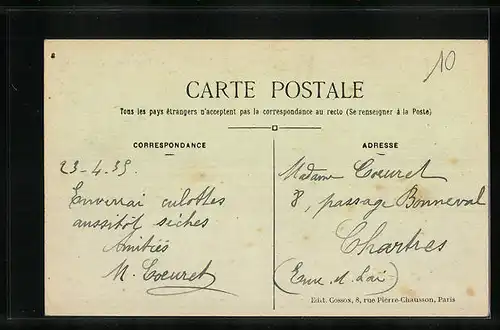 10
CARTE POSTALE
Tous les pays étrangers n'acceptent pas la correspondance au recto (Se renseigner à la Poste)
CORRESPONDANCE
23-4.35.
Enverrai culottes
aussitôt sèches
Amitiés
M. Coeuret
ADRESSE
Madame Coeuret
8, passage Bonneval
Chartres
(Eure & Loir)
Edit. Cosson, 8, rue Pierre-Chausson, Paris